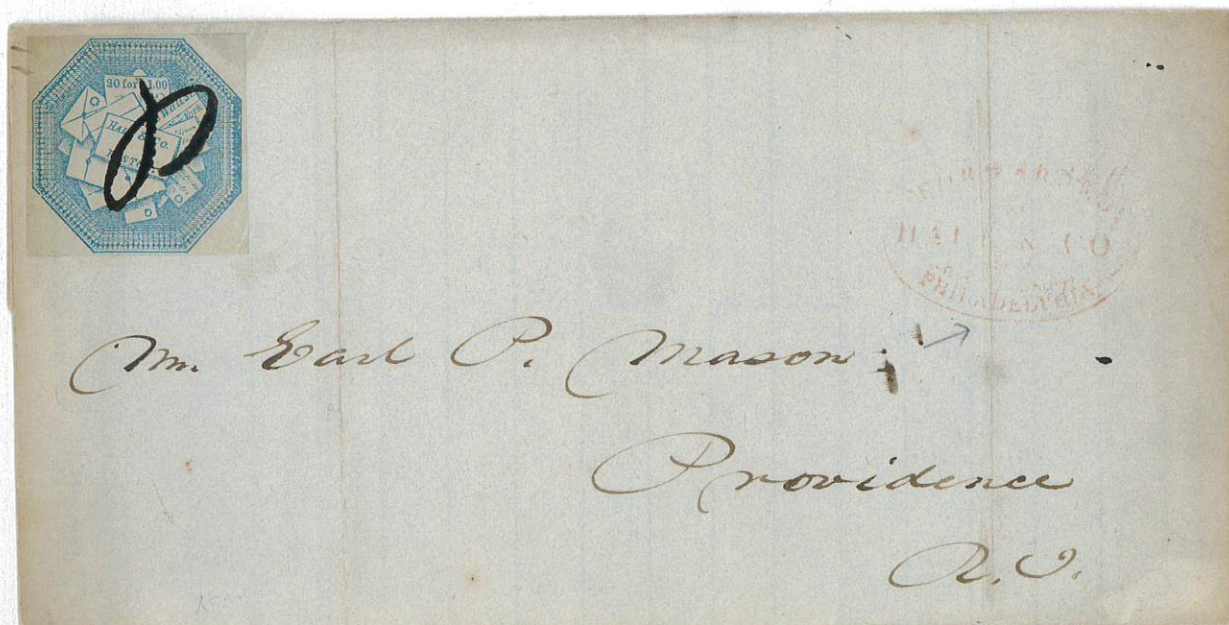 20 for 1.00
& Co.
HALE & CO
PHILADELPHIA
Mr. Earl P. Mason
Providence
R.I.